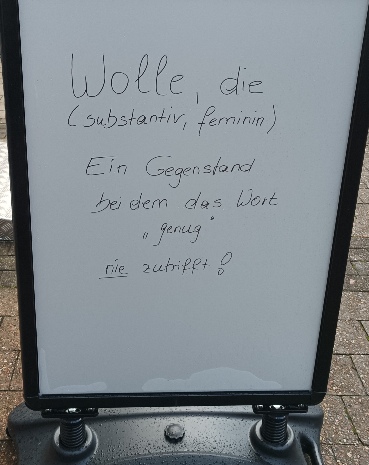 Wolle, die
(substantiv, feminin)
Ein Gegenstand
bei dem das Wort
„genug"
nie zutrifft!